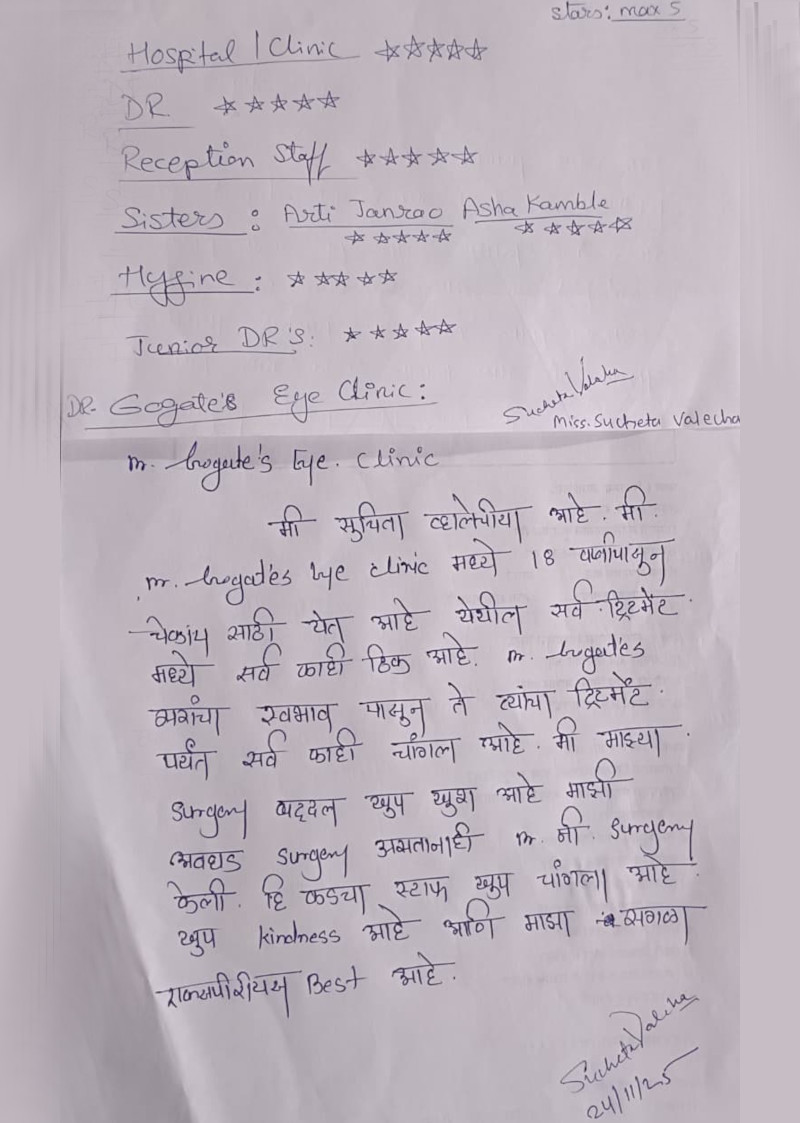 stars: max 5
Hospital / Clinic ☆☆☆☆☆
DR ☆☆☆☆☆
Reception Staff ☆☆☆☆☆
Sisters : Arti Janrao Asha Kamble
☆☆☆☆☆ ☆☆☆☆☆
Hygine : ☆☆☆☆☆
Junior DR's: ☆☆☆☆☆
Sucheta Valecha
DR. Gogate's Eye Clinic:
Miss. Sucheta Valecha
Gogate's Eye. Clinic
मी सुचिता व्हालेचीया आहे. मी.
Gogate's Eye clinic मध्ये 18 वर्षापासुन
चेकांप साठी येत आहे येथील सर्व ट्रिटमेंट
मध्ये सर्व काही ठिक आहे. Gogate's
सरांचा स्वभाव पासुन ते त्यांचा ट्रिटमेंट.
पर्यंत सर्व काही चांगल आहे. मी माझ्या
surgery बद्दल खुप खुश आहे माझी
अवघड surgery असतानाही नी. surgery
केली. हि कडचा स्टाफ खुप चांगला आहे.
खुप kindness आहे आणि माझा सगळा
Best आहे.
Sucheta Valecha
24/11/25